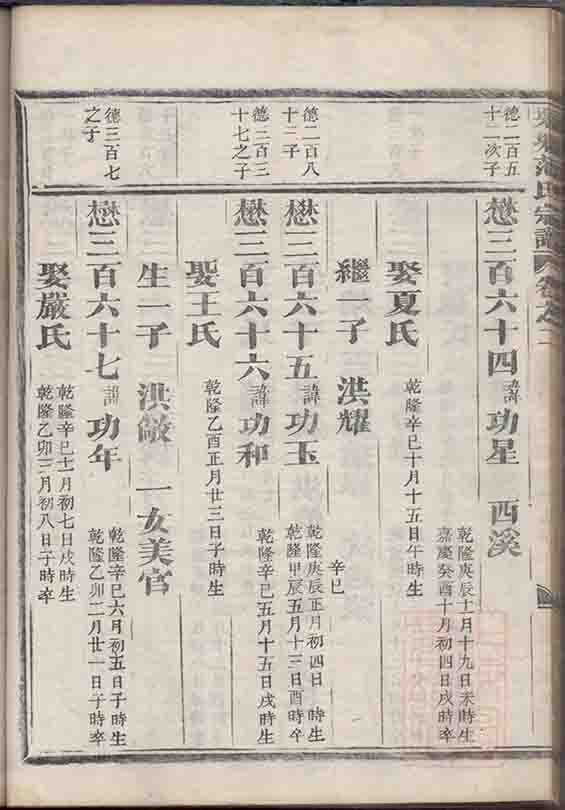 范氏宗譜 卷之二
德二百五
十二次子
懋三百六十四 諱功星 西溪
乾隆庚辰十月十九日未時生
嘉慶癸酉十月初四日戌時卒
娶夏氏
乾隆辛巳十月十五日午時生
繼一子 洪耀
辛巳
德二百八
十二子
懋三百六十五 諱功玉
乾隆庚辰正月初四日 時生
乾隆甲辰五月十三日酉時卒
德二百三
十七之子
懋三百六十六 諱功和
乾隆辛巳五月十五日戌時生
娶王氏
乾隆乙酉正月廿三日子時生
生一子 洪斂 一女美官
德三百七
之子
懋三百六十七 諱功年
乾隆辛巳六月初五日子時生
乾隆乙卯二月廿一日子時卒
娶嚴氏
乾隆辛巳十一月初七日戌時生
乾隆乙卯三月初八日子時卒